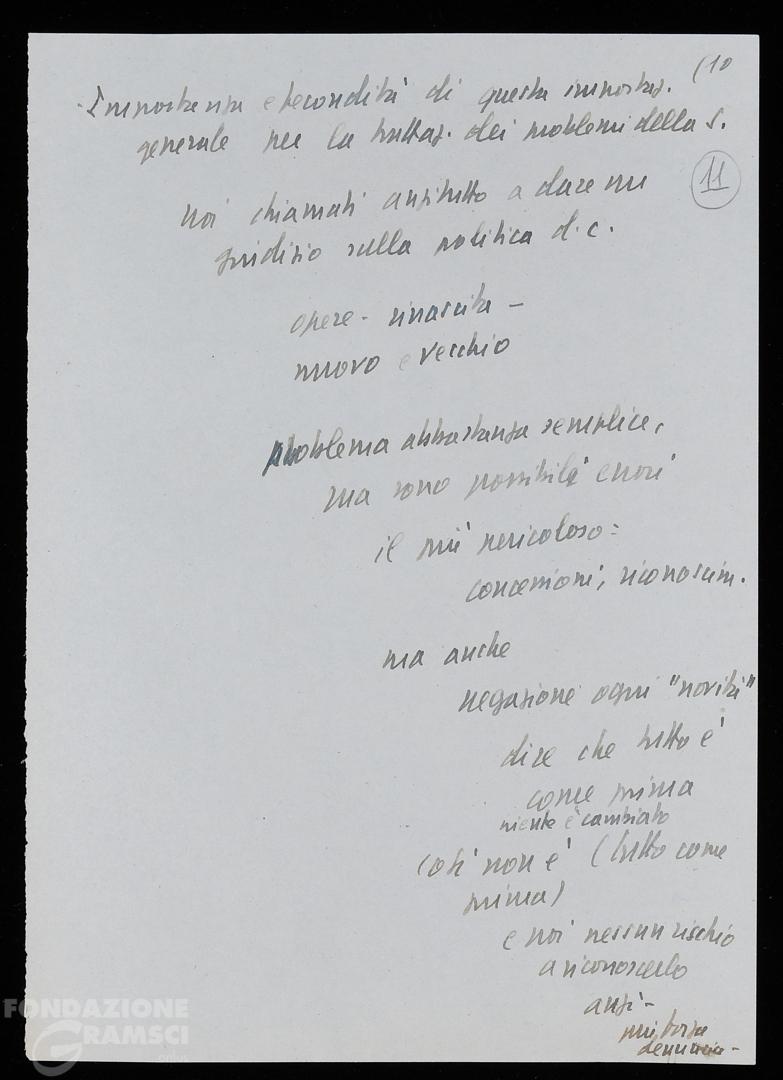 (10
- Importanza e fecondità di questa impostaz.
generale per la trattaz. dei problemi della S.
11
noi chiamati anzitutto a dare un
giudizio sulla politica d.c.
opere - rinascita -
nuovo e vecchio
problema abbastanza semplice,
ma sono possibili errori
il più pericoloso:
concessioni, riconoscim.
ma anche
negazione ogni "novità"
dire che tutto è
come prima
niente è cambiato
così non è (tutto come
prima)
e noi nessun rischio
a riconoscerlo
anzi -
più forza
denuncia -
FONDAZIONE
GRAMSCI
onlus